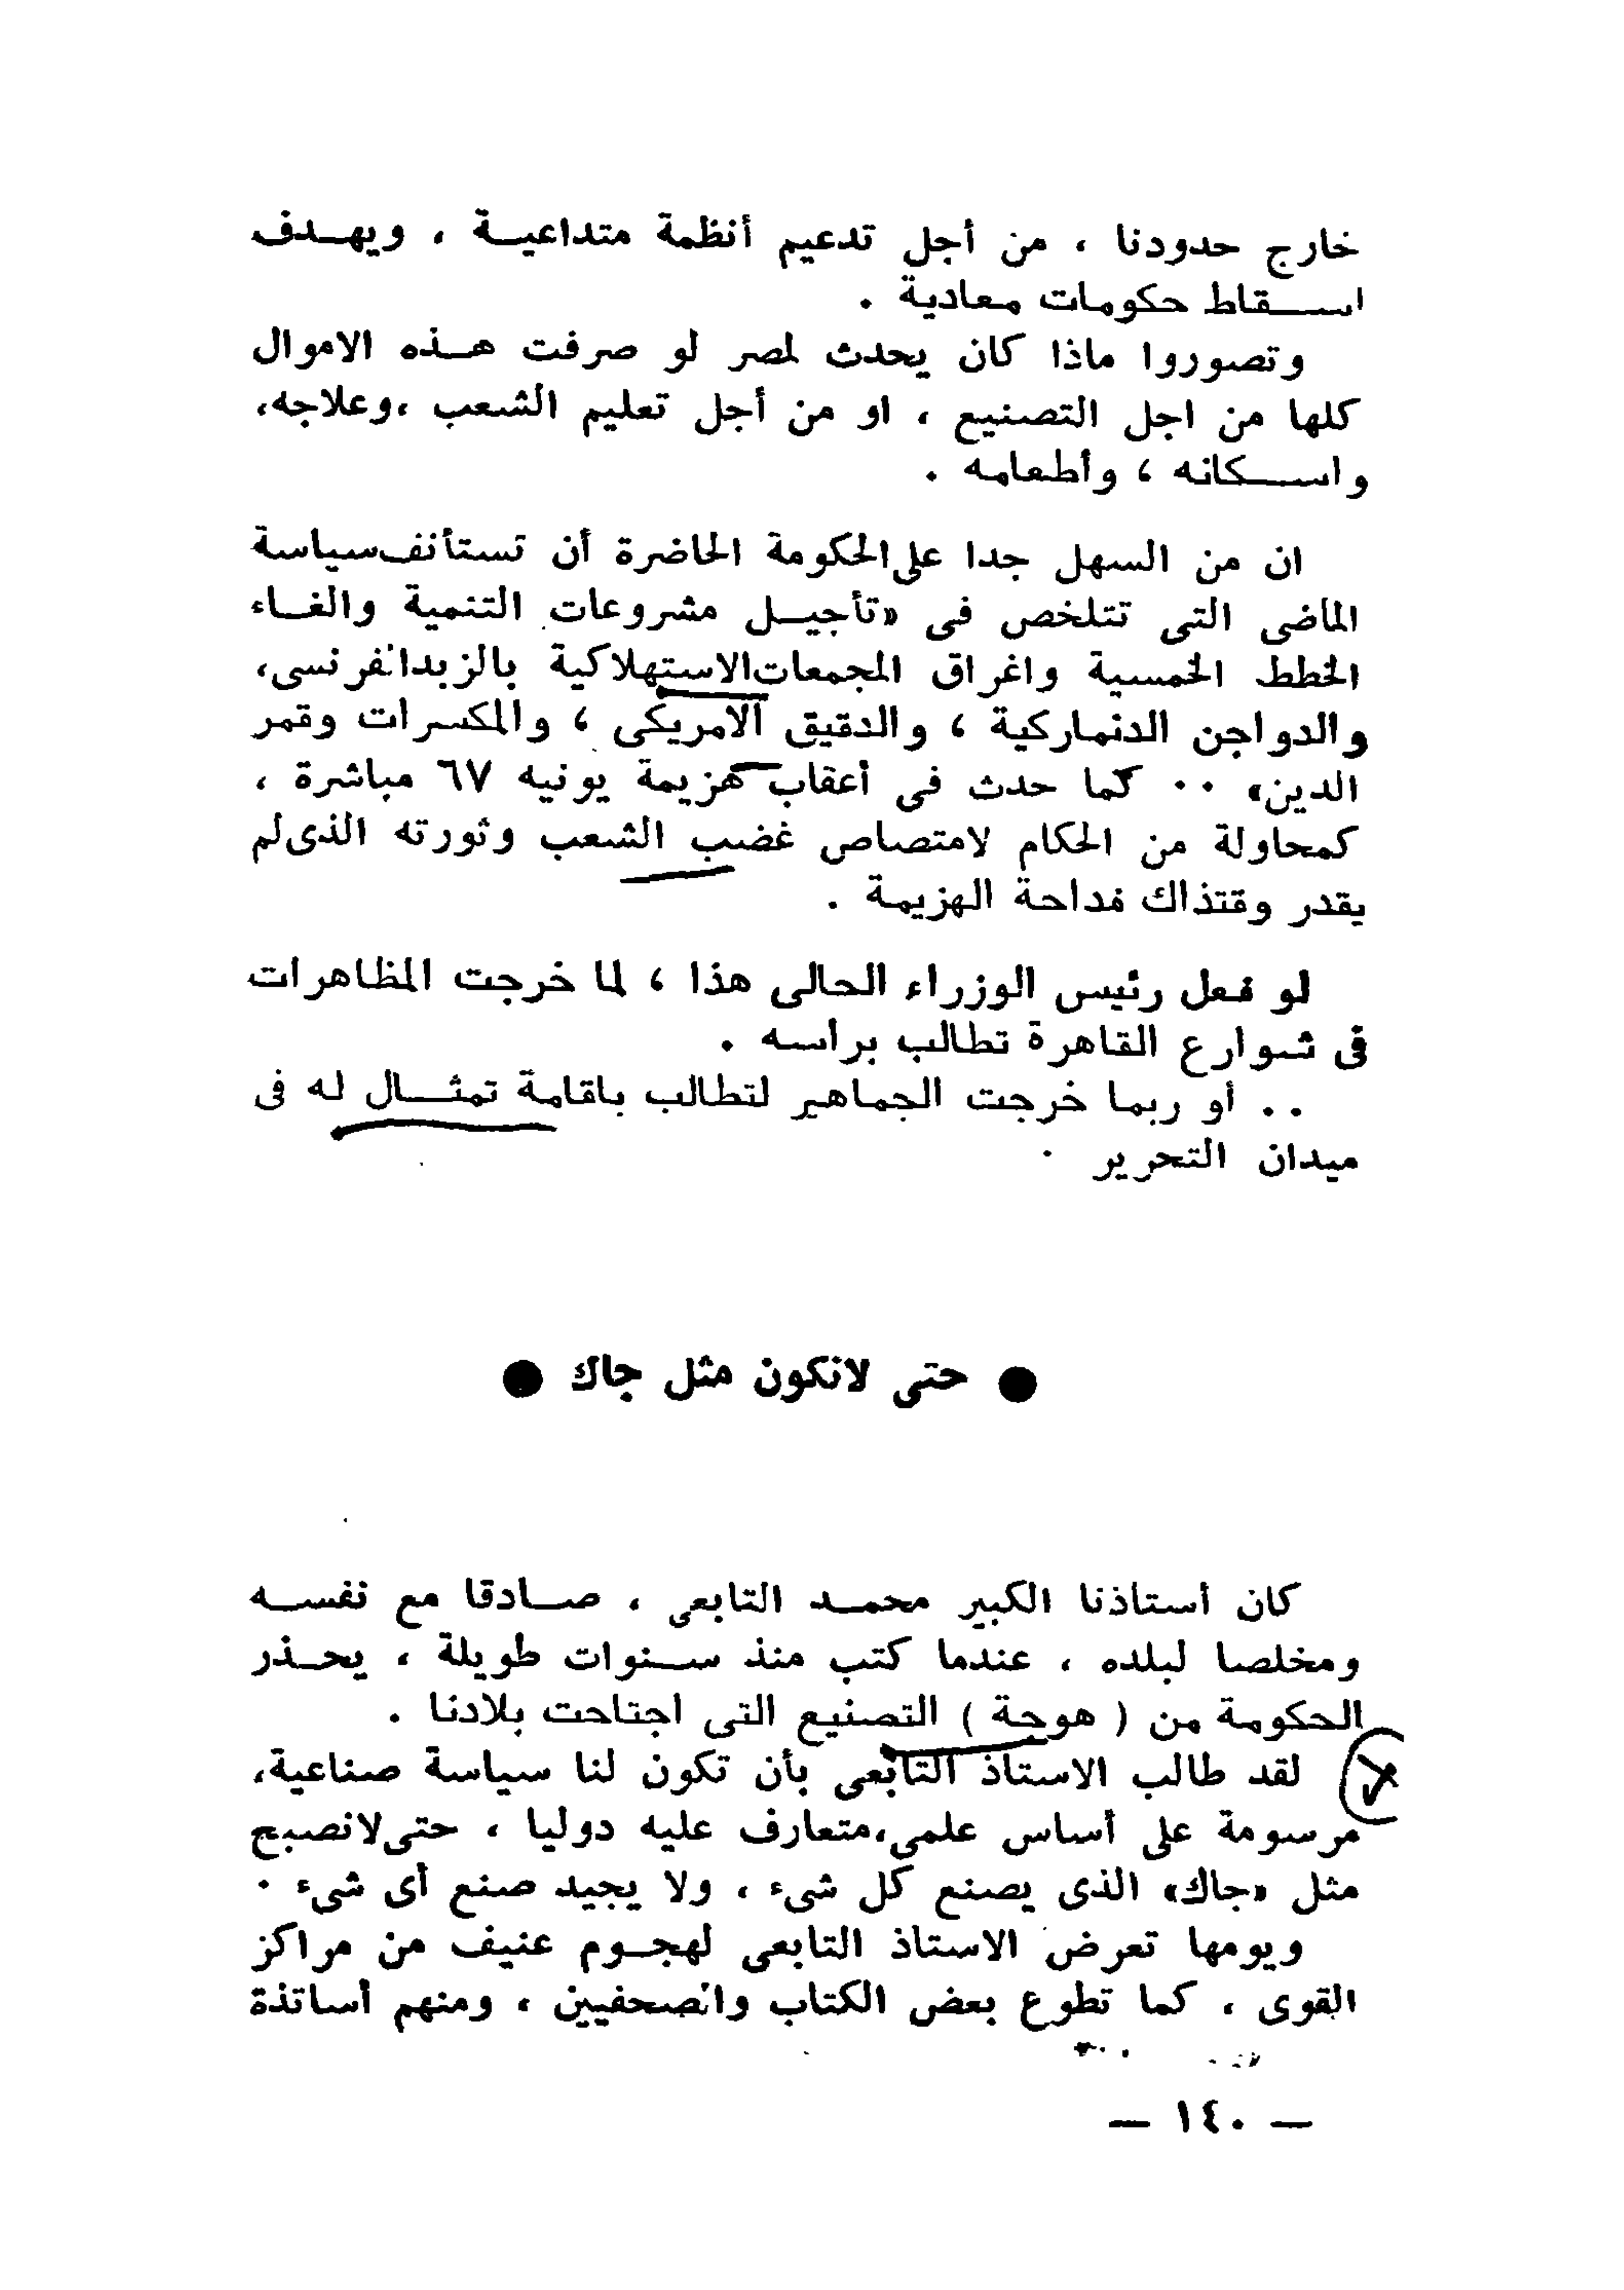 خارج حدودنا ، من أجل تدعيم أنظمة متداعيـة ، ويهـدف
اسـقاط حكومات معادية .
وتصوروا ماذا كان يحدث لمصر لو صرفت هـذه الاموال
كلها من اجل التصنيع ، او من أجل تعليم الشعب ،وعلاجه،
واسـكانه ، وأطعامه .
ان من السهل جدا على الحكومة الحاضرة أن تستأنف سياسة
الماضى التى تتلخص فى «تأجيـل مشروعات التنمية والغـاء
الخطط الخمسية واغراق المجمعات الاستهلاكية بالزبد الفرنسى،
والدواجن الدنماركية ، والدقيق الامريكى ، والمكسرات وقمر
الدين» .. كما حدث فى أعقاب هزيمة يونيه ٦٧ مباشرة ،
كمحاولة من الحكام لامتصاص غضب الشعب وثورته الذى لم
يقدر وقتذاك فداحة الهزيمة .
لو فعل رئيس الوزراء الحالى هذا ، لما خرجت المظاهرات
فى شوارع القاهرة تطالب براسه .
.. أو ربما خرجت الجماهير لتطالب باقامة تمثـال له فى
ميدان التحرير .
● حتى لانكون مثل جاك ●
كان أستاذنا الكبير محمـد التابعى ، صـادقا مع نفسـه
ومخلصا لبلده ، عندما كتب منذ سـنوات طويلة ، يحـذر
الحكومة من ( هوجة ) التصنيع التى اجتاحت بلادنا .
لقد طالب الاستاذ التابعى بأن تكون لنا سياسة صناعية،
مرسومة على أساس علمى،متعارف عليه دوليا ، حتى لانصبح
مثل «جاك» الذى يصنع كل شىء ، ولا يجيد صنع أى شىء .
ويومها تعرض الاستاذ التابعى لهجـوم عنيف من مراكز
القوى ، كما تطوع بعض الكتاب والصحفيين ، ومنهم أساتذة
— ١٤٠ —